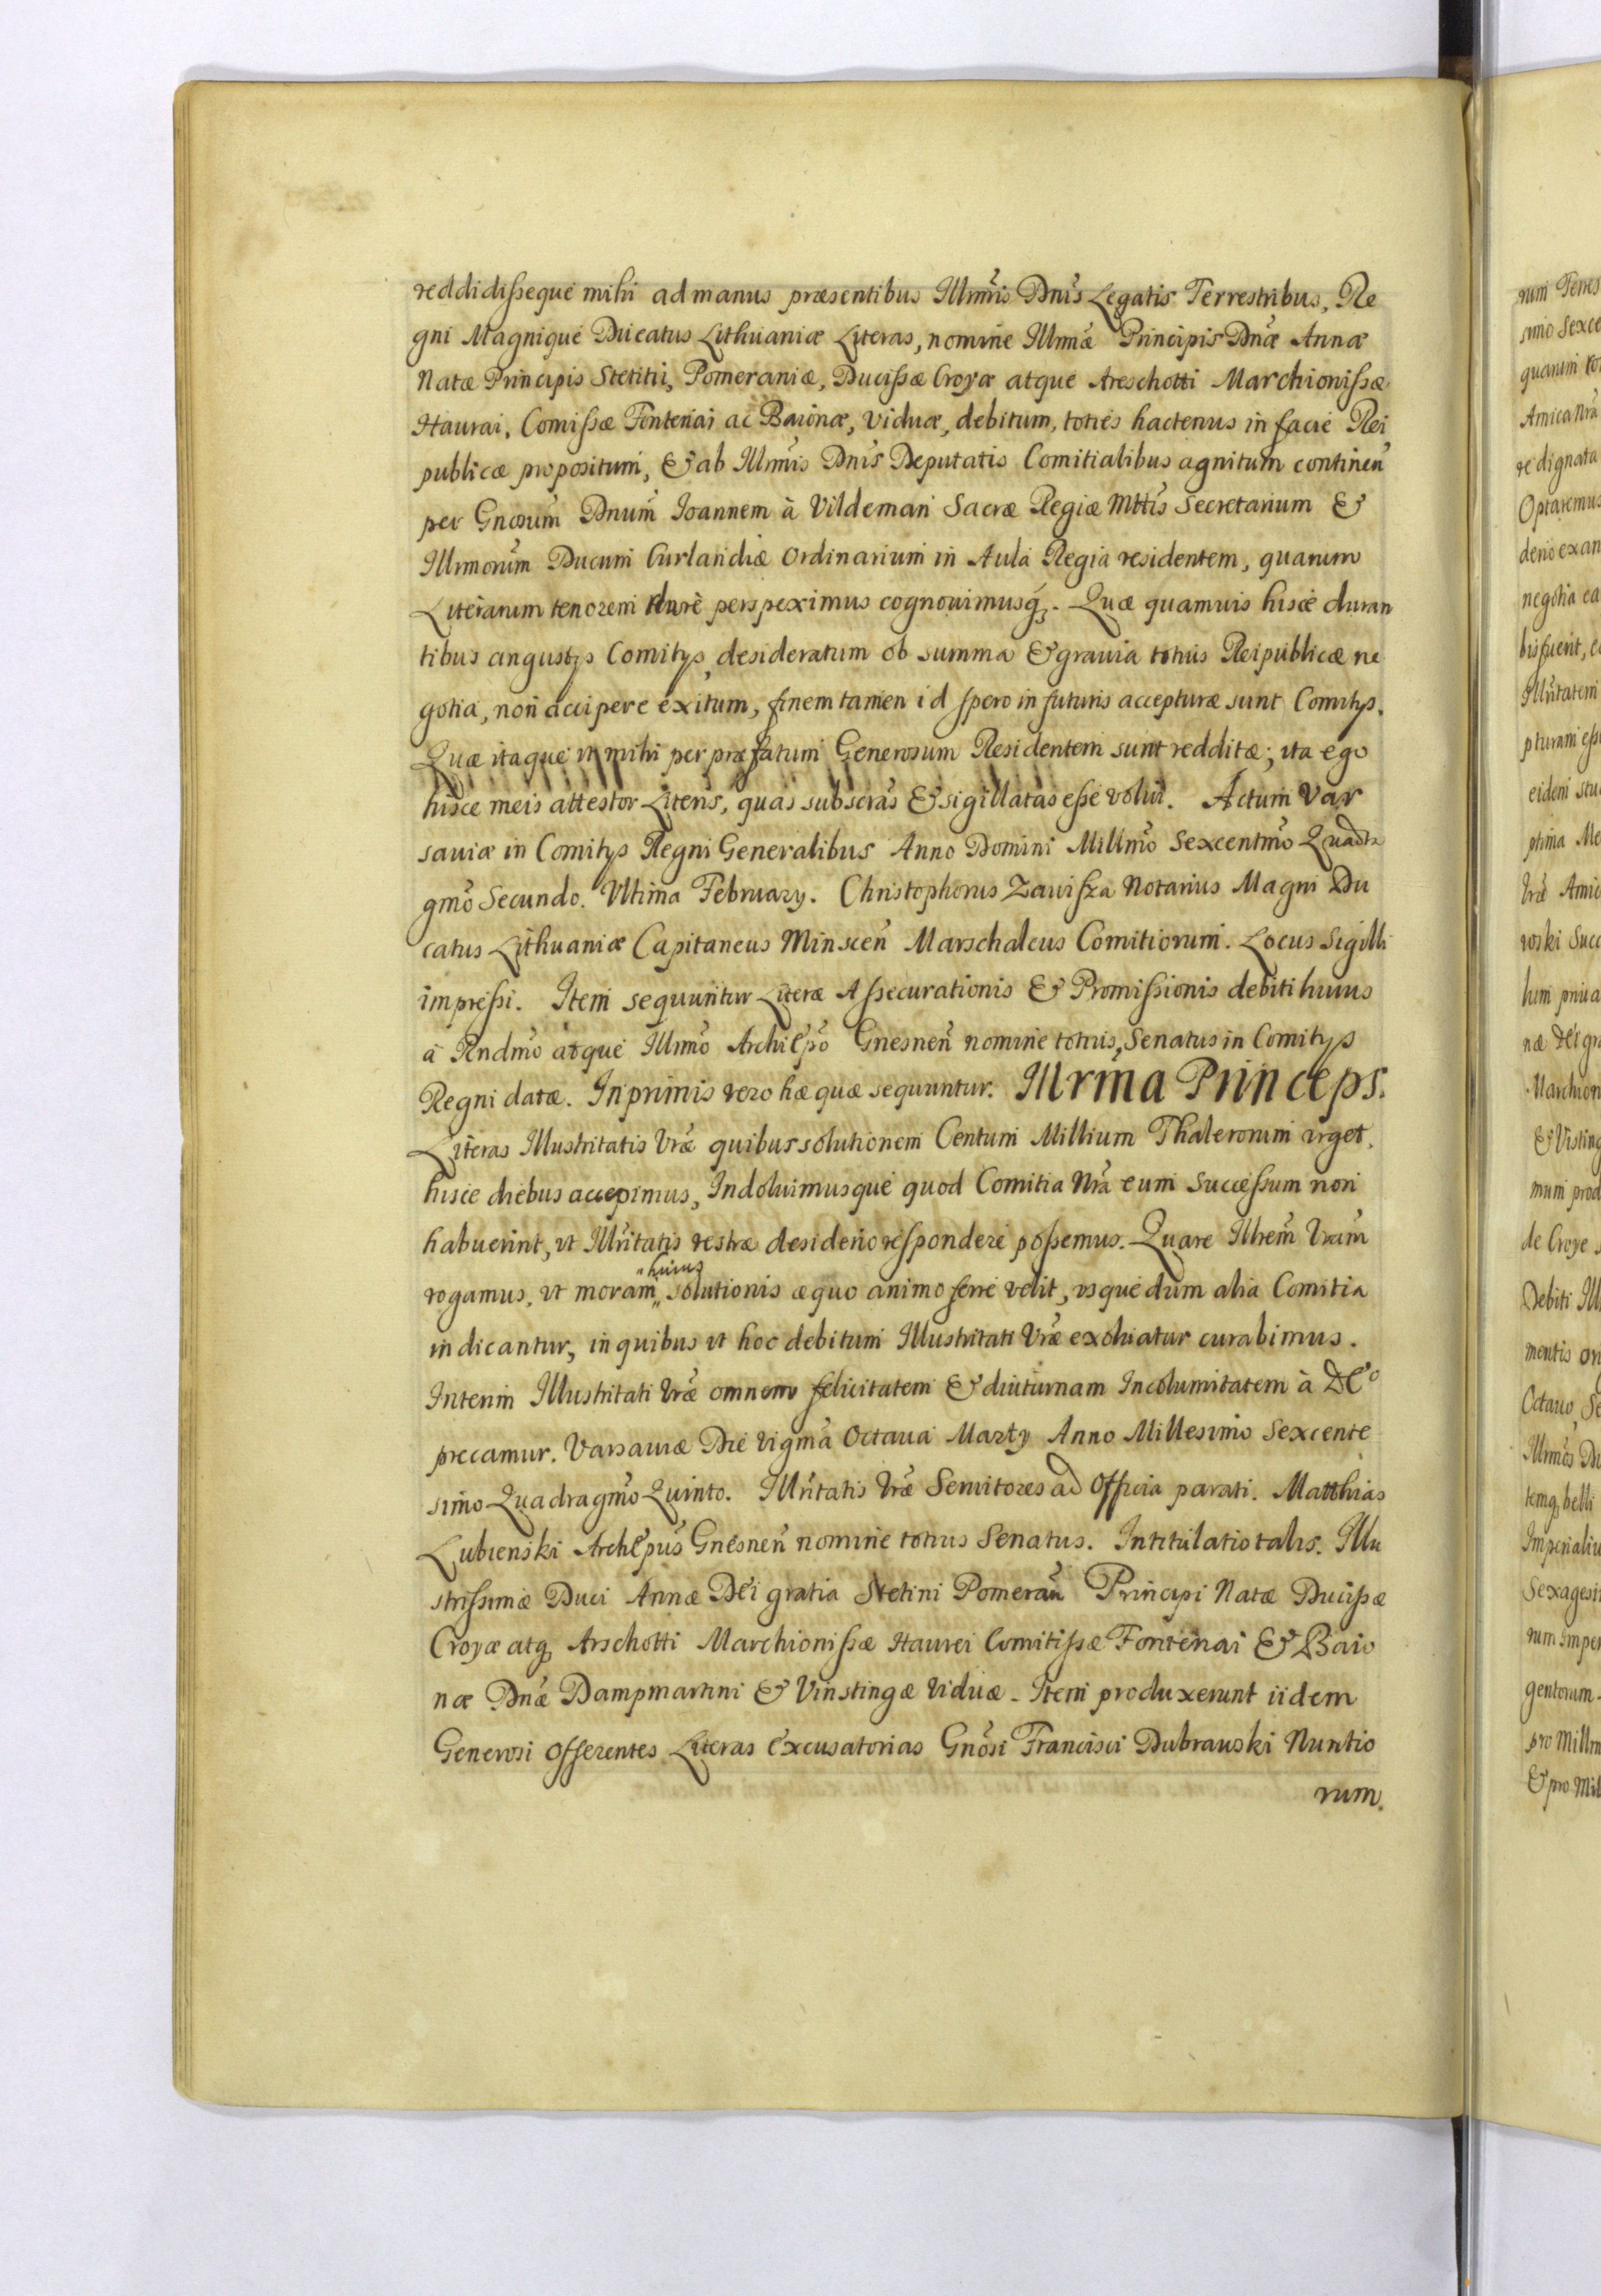 reddidisseque mihi ad manus præsentibus Illmis Dnis Legatis Terrestribus, Re
gni Magnique Ducatus Lithuaniæ Literas, nomine Illmæ Principis Dnæ Annæ
Natæ Principis Stetini, Pomeraniæ, Ducissæ Croyæ atque Areschotti Marchionissæ
Haurai, Comissæ Fontenai ac Baionæ, Viduæ, debitum, toties hactenus in facie Rei
publicæ propositum, & ab Illmis Dnis Deputatis Comitialibus agnitum continen
per Gnosum Dnum Ioannem à Vildeman Sacræ Regiæ Mttis Secretarium &
Illmorum Ducum Curlandiæ Ordinarium in Aula Regia residentem, quarum
Literarum tenorem perspeximus cognouimusq. Quæ quamuis hisce duran
tibus angustys Comitys, desideratum ob summa & grauia totius Reipublicæ ne
gotia, non accipere exitum, finem tamen id spero in futuris accepturæ sunt Comitys.
Quæ itaque ut mihi per præfatum Generosum Residentem sunt redditæ; ita ego
hisce meis attestor Literis, quas subscras & sigillatas esse volui. Actum Var
sauiæ in Comitys Regni Generalibus Anno Domini Millmo Sexcentmo Quadra
gmo Secundo. Vltima February. Christophorus Zauisza Notarius Magni Du
catus Lithuaniæ Capitaneus Minscen Marschalcus Comitiorum. Locus Sigilli
impressi. Item sequuntur Literæ Assecurationis & Promissionis debiti huius
à Rndmo atque Illmo Archiepo Gnesnen nomine totius Senatus in Comitys
Regni datæ. Inprimis vero hæ quæ sequuntur. Illrma Princeps.
Literas Illustritatis Vræ quibus solutionem Centum Millium Thalerorum urget,
hisce diebus accepimus, Indoluimusque quod Comitia Nra eum Successum non
habuerint, ut Illritatis vestræ desiderio respondere possemus. Quare Illrem Vram
rogamus, ut moram huius solutionis æquo animo ferre velit, usque dum alia Comitia
indicantur, in quibus ut hoc debitum Illustritati Vræ exoluatur curabimus.
Interim Illustritati Vræ omnem felicitatem & diuturnam Incolumitatem à Deo
precamur. Varsauiæ Die Vigma Octaua Marty Anno Millesimo Sexcente
simo Quadragmo Quinto. Illritatis Vræ Seruitores ad Officia parati. Matthias
Lubienski Archiepus Gnesnen nomine totius Senatus. Intitulatio talis. Illu
strissimæ Duci Annæ Dei gratia Stetini Pomeran Principi Natæ Ducissæ
Croyæ atq Arschotti Marchionissæ Haurei Comitissæ Fontenai & Baio
næ Dnæ Dampmartini & Vinstingæ Viduæ. Item produxerunt iidem
Generosi Offerentes Literas Excusatorias Gnosi Francisci Dubrauski Nuntio
rum.